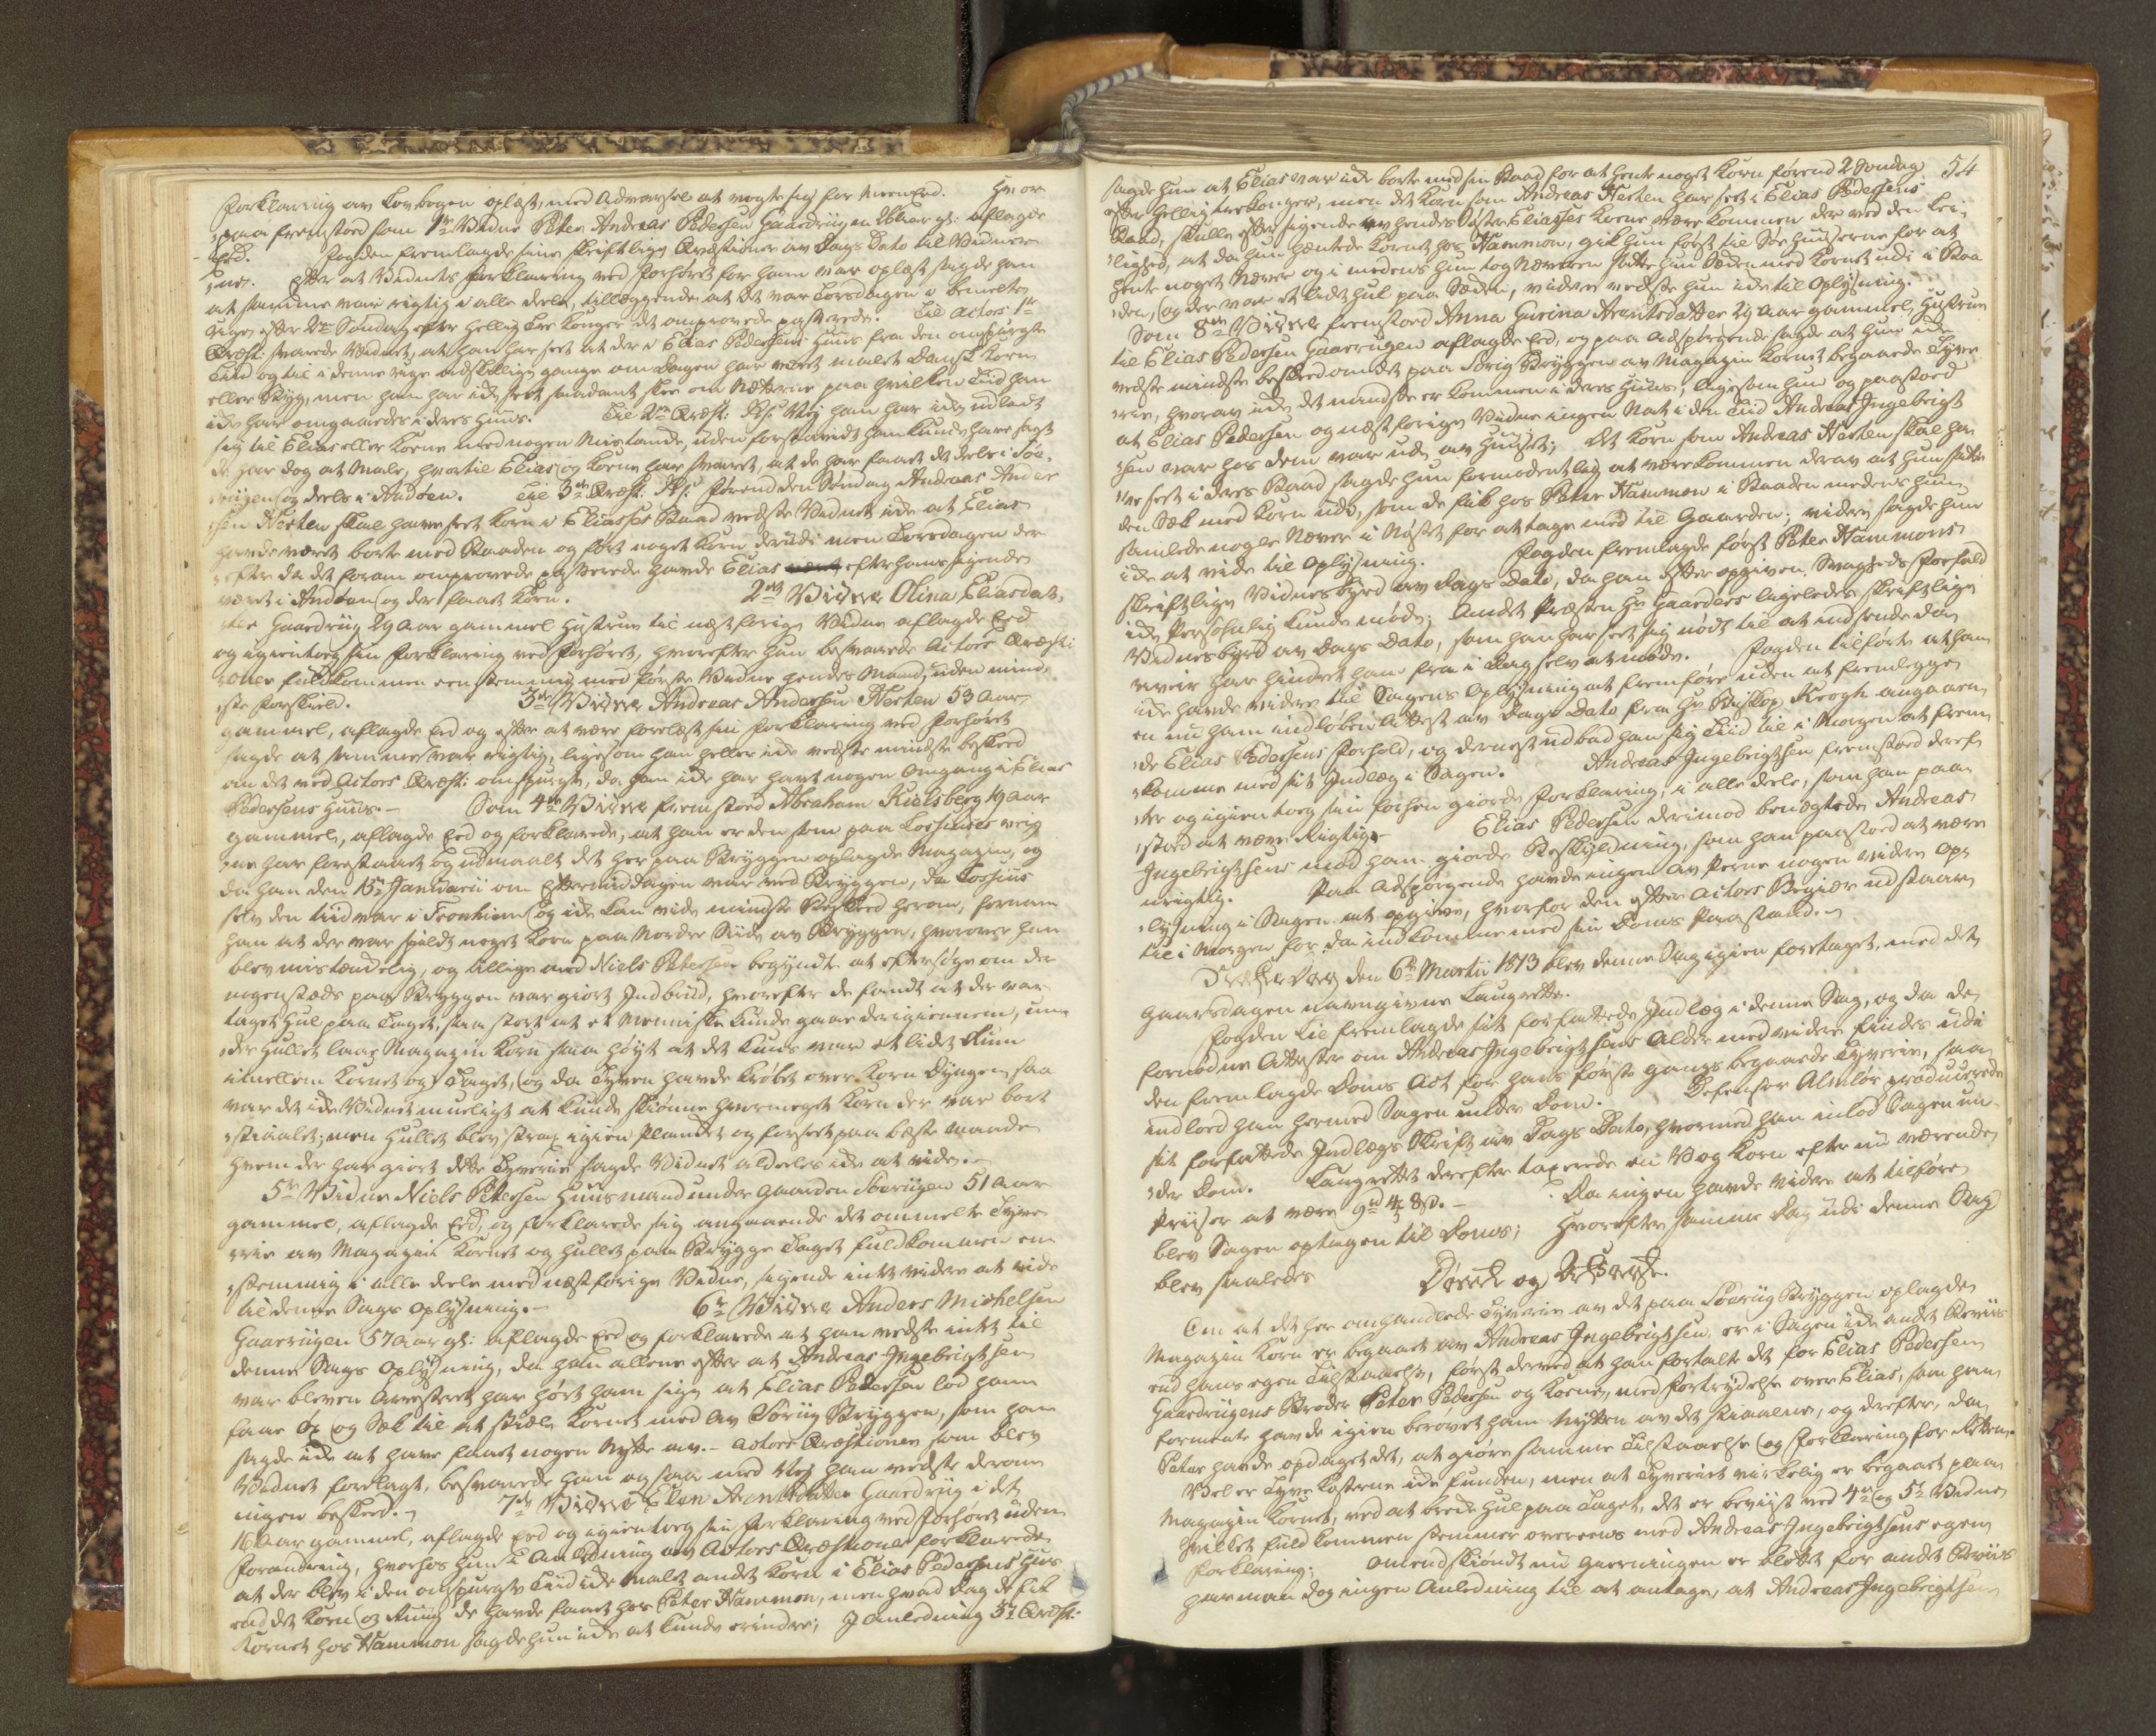 Forklaring av Lovbogen oplæst, med Advarsel at vogte sig for Meeneed. Hvor
„paa fremstoed som 1te Vidne Peter Andreas Pedersen Gaardriigen aar gl: aflagde
Eed. Fogden fremlagde sine skriftlige Qvæstioner av Dags Dato til Vidner
„ne. Efter at Vidnets Forklaring ved Forhøret for ham var oplæst sagde han
at samme var rigtig i alle deele, tillæggende at det var Torsdagen i bemelte
Uge, efter 2den Søndag efter Hellig Tre Konger det omprovede passerede. Til Actors 1te
Qvæst: svarede Vidnet, at han har seet at der i Elias Pedersens Huus fra den omspurgte
Tiid og til i denne Uge adskillige gange om Dagen har været malet Dansk Korn
eller Byg, men han har ikke seet saadant skee om Nætterne paa hvilken Tiid han
ikke har omgaaedes i deres Huus. Til 2den Qvæst: Rs: Nej han har ikke udladt
sig til Elias eller Kone med nogen Mistanke, uden forsaavidt han kunde have sagt
de har dog at Male, hvortil Elias og Kone har svaret, at de har faaet det deels i Søe-
„riigen og deels i Andøen. Til 3die Qvæst: Rs: Førend den Søndag Andreas Ander
„sen Nesten skal have seet Korn i Eliasses Baad vedste Vidnet ikke at Elias
havde været borte med Baaden og ført noget Korn derudi men Torsdagen der
„efter da det foran omprovede passerede havde Elias efter hans sigende
været i Andøen og der faaet Korn. 2det Vidne Olina Eliasdat-
„ter Gaardriig 29 Aar gammel Hustrue til næstforige Vidne aflagde Eed
og igientog sin Forklaring ved Forhøret, hvorefter hun besvarede Actors Qvæsti
„oner fuldkommen eenstemmig med første Vidne hendes Mand, uden mind-
„ste forskiel. 3die Vidne Andreas Andersen Nesten 53 Aar
gammel, aflagde Eed og efter at være forelæst sin Forklaring ved Forhøret
sagde at samme var rigtig, ligesom han heller ikke vedste mindste beskeed
om det ved Actors Qvæst: omspurgte, da han ikke har havt nogen Omgang i Elias
Pedersens Huus.- Som 4de Vidne fremstoed Abraham Kielsberg 19 Aar
gammel, aflagde Eed og forklarede, at han er den som paa Lossiuses veg-
„ne har forestaaet og udmaalt det her paa Bryggen oplagde Magazin, og
da han den 15de Januarii om Eftermiddagen var ved Bryggen, da Lossius
selv den tiid var i Tronhiem og ikke kan vide mindste Beskeed herom, fornam
han at der var spildt noget Korn paa Nordre Siide av Bryggen, hvorover han
blev mistænkelig, og tillige med Niels Petersen begyndte at eftersøge om der
nogenstæds paa Bryggen var giort Indbrud, hvorefter de fandt at der var
taget Hul paa Taget, saa stort at et Menniske kunde gaae derigiennem, un-
„der hullet laae Magazin Korn saa høyt at det kuns var et lidet Rum
imellem Kornet og Taget, og da Tyven havde krøbet over Korn Dyngen, saa
var det ikke Vidnet mueligt at kunde skiønne hvormeget Korn der var bort
„stiaalet; men Hullet blev strax igien plandket og forseet paa beste maade
hvem der har giort dette Tyverie sagde Vidnet aldeles ikke at vide.-
5te Vidne Niels Petersen Huusmand under Gaarden Soeriigen 51 Aar
gammel, aflagde Eed, og forklarede sig angaaende det ommelte Tyve
„rie av Magazin Kornet og Hullet paa Brygge Taget fuldkommen een
„stemmig i alle deele med næstforige Vidne, sigende intet videre at vide
til denne Sags Oplysning.- 6te Vidne Anders Michelsen
Gaarriigen 57 Aar gl: aflagde Eed og forklarede at han vedste intet til
denne Sags Oplysning, da han allene efter at Andreas Ingebrigtsen
var bleven Arresteret har hørt ham sige at Elias Pedersen lod ham
faae Ox og Sæk til at stiæle Kornet med av Søriig Bryggen, som han
sagde ikke at have faaet nogen Nytte av.- Actors Qvæstioner som blev
Vidnet forelagt, besvarede han ogsaa med Nej han vedste derom
ingen beskeed.- 7de Vidne Elen Arentsdatter Gaardriig i det
16 Aar gammel, aflagde Eed og igientog sin Forklaring ved Forhøret uden
Forandring, hvorhos hun i Anledning av Actors Qvæstioner forklarede
at der blev i den omspurgte Tiid ikke malet andet Korn i Elias Pedersens Huus
end det Korn og Rug de havde faaet hos Peter Hammon, men hvad Dag de fik
Kornet hos Hammon sagde hun ikke at kunde erindre; I anledning 3die Qvæst:
54
sagde hun at Elias var ikke borte med sin Baad for at hente noget Korn førend 2 Søndag
efter Hellig tre konger, men det Korn som Andreas Nesten har seet i Elias Pedersens
Baad, skulle efter sigende av hendes Søster Eliasses Kone være kommen der ved den Lei-
„lighed, at da hun hentede Kornet hos Hammon, gik hun først til Søe Huuserne for at
hente noget Næver og i medens hun tog Næveren satte hun Sækken med Kornet udi i Baa
„den, og der var et lidet hul paa Sækken, videre vedste hun ikke til Oplysning.
Som 8de Vidne fremstoed Anna Gurina Arentsdatter 29 Aar gammel, Hustrue
til Elias Pedersen Gaarriigen aflagde Eed, og paa Adspørgende sagde at hun ikke
vedste mindste beskeed om det paa Sørig Bryggen av Magazin Kornet begaaede Tyve
„rie, hvorav ikke det mindste er kommen i deres Huus, ligesom hun og paastoed
at Elias Pedersen og næstforige Vidne ingen Nat i den Tiid Andreas Ingebrigt
„sen var hos dem var ude av Huuset; Det Korn som Andreas Nesten skal ha
„ve seet i deres Baad sagde hun formodentlig at være kommen derav at hun satte
den Sæk med Korn udi, som de fik hos Peter Hammon i Baaden medens hun
samlede nogle Næver i Nøstet for at tage med til Gaarden; videre sagde hun
ikke at vide til Oplysning. Fogden fremlagde først Peter Hammons
skriftlige Vidnesbyrd av Dags Dato, da han efter opgiven Svagheds Forfald
ikke Personlig kunde møde; Andet Præsten Hr Gaarders ligeledes skriftlige
Vidnesbyrd av Dags Dato, som han har seet sig nødt til at indsende da
uveir har hindret ham fra i Dag selv at møde. Fogden tilførte at han
ikke havde videre til Sagens Oplysning at fremføre uden at fremlegge
en nu ham indløben Attest av Dags Dato fra Hr Biskop Krogh angaaen
„de Elias Pedersens Forhold, og dernest udbad han sig Tiid til i Morgen at frem
„komme med sit Indlæg i Sagen. Andreas Ingebrigtsen fremstoed deref
„ter og igientog sin forhen giorde Forklaring, i alle deele, som han paa
„stoed at være Rigtig.- Elias Pedersen derimod benægtede Andreas
Ingebrigtsens mod ham giorde Beskyldning, som han paastoed at være
urigtig. Paa Adspørgende havde ingen av Perne nogen videre Op-
„lysning i Sagen at opgive, hvorfor den efter Actors Begiær udstaar
til i Morgen for da indkomme med sin Doms Paastand.-
Derefter den 6te Martii 1813 blev denne Sag igien foretaget, med det
gaarsdagen navngivne Laugrette.
Fogden til fremlagde sit forfattede Indlæg i denne Sag, og da de
fornødne Attester om Andreas Ingebrigtsens Alder med videre findes udi
den fremlagde Doms Act for hans første gangs begaaede Tyverie, saa
indlod han hermed Sagen under Dom. Defensor Almlør producerede
sit forfattede Indlægs Skrift av Dags Dato, hvormed han inlod Sagen un-
„der Dom. Laugrettet derefter taxerede en Vog Korn efter nu værende
Priiser at være 9rd 4 mk 8 s.- Da ingen havde videre at tilføre
blev Sagen optagen til Doms; Hvorefter samme Dag udi denne Sag
blev saaledes
Dømt og Afsagt.
Om at det her omhandlede Tyverie av det paa Soeriig Bryggen oplagde
Magazin Korn er begaaet av Andreas Ingebrigtsen, er i Sagen ikke andet Beviis
end hans egen Tilstaaelse, først derved at han fortalte det for Elias Pedersen
Gaardriigens Broder Peter Pedersen og Kone, med Fortrydelse over Elias, som han
formente havde igien berøvet ham Nytten av det stiaalne, og derefter, da
Peter havde opdaget det, at giøre samme Tilstaaelse og Forklaring for Retten.
Vel er Tyve Kosterne ikke funden, men at Tyveriet virkelig er begaaet paa
Magazin Kornet, ved at brede Hul paa Taget, det er beviist ved 4de og 5te Vidne
Hvilket fuldkommen stemmer overeens med Andreas Ingebrigtsens egen
Forklaring; Omendskiøndt nu Gierningen er blottet for andet Beviis
har man dog ingen Anledning til at antage, at Andreas Ingebrigtsen